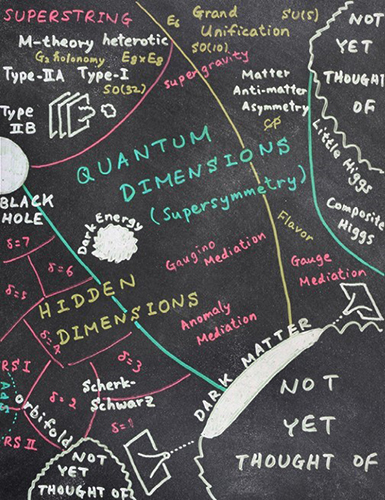 SUPERSTRING
M-theory heterotic
G₂ holonomy E₈xE₈
Type-IIA Type-I
SO(32)
Type
IIB
E₆ Grand SU(5)
Unification
SO(10)
supergravity
Matter
Anti-matter
Asymmetry
CP
NOT
YET
THOUGHT
OF
Little Higgs
Composite
Higgs
QUANTUM
DIMENSIONS
(Supersymmetry)
BLACK
HOLE
Dark Energy
Flavor
Gaugino
Mediation
Gauge
Mediation
Anomaly
Mediation
δ=7
δ=6
δ=5
HIDDEN
DIMENSIONS
δ=3
RSI
AdS
δ=2
Scherk-
Schwarz
orbifold
RSII
δ=1
DARK MATTER
NOT
YET
THOUGHT OF
NOT
YET
THOUGHT OF